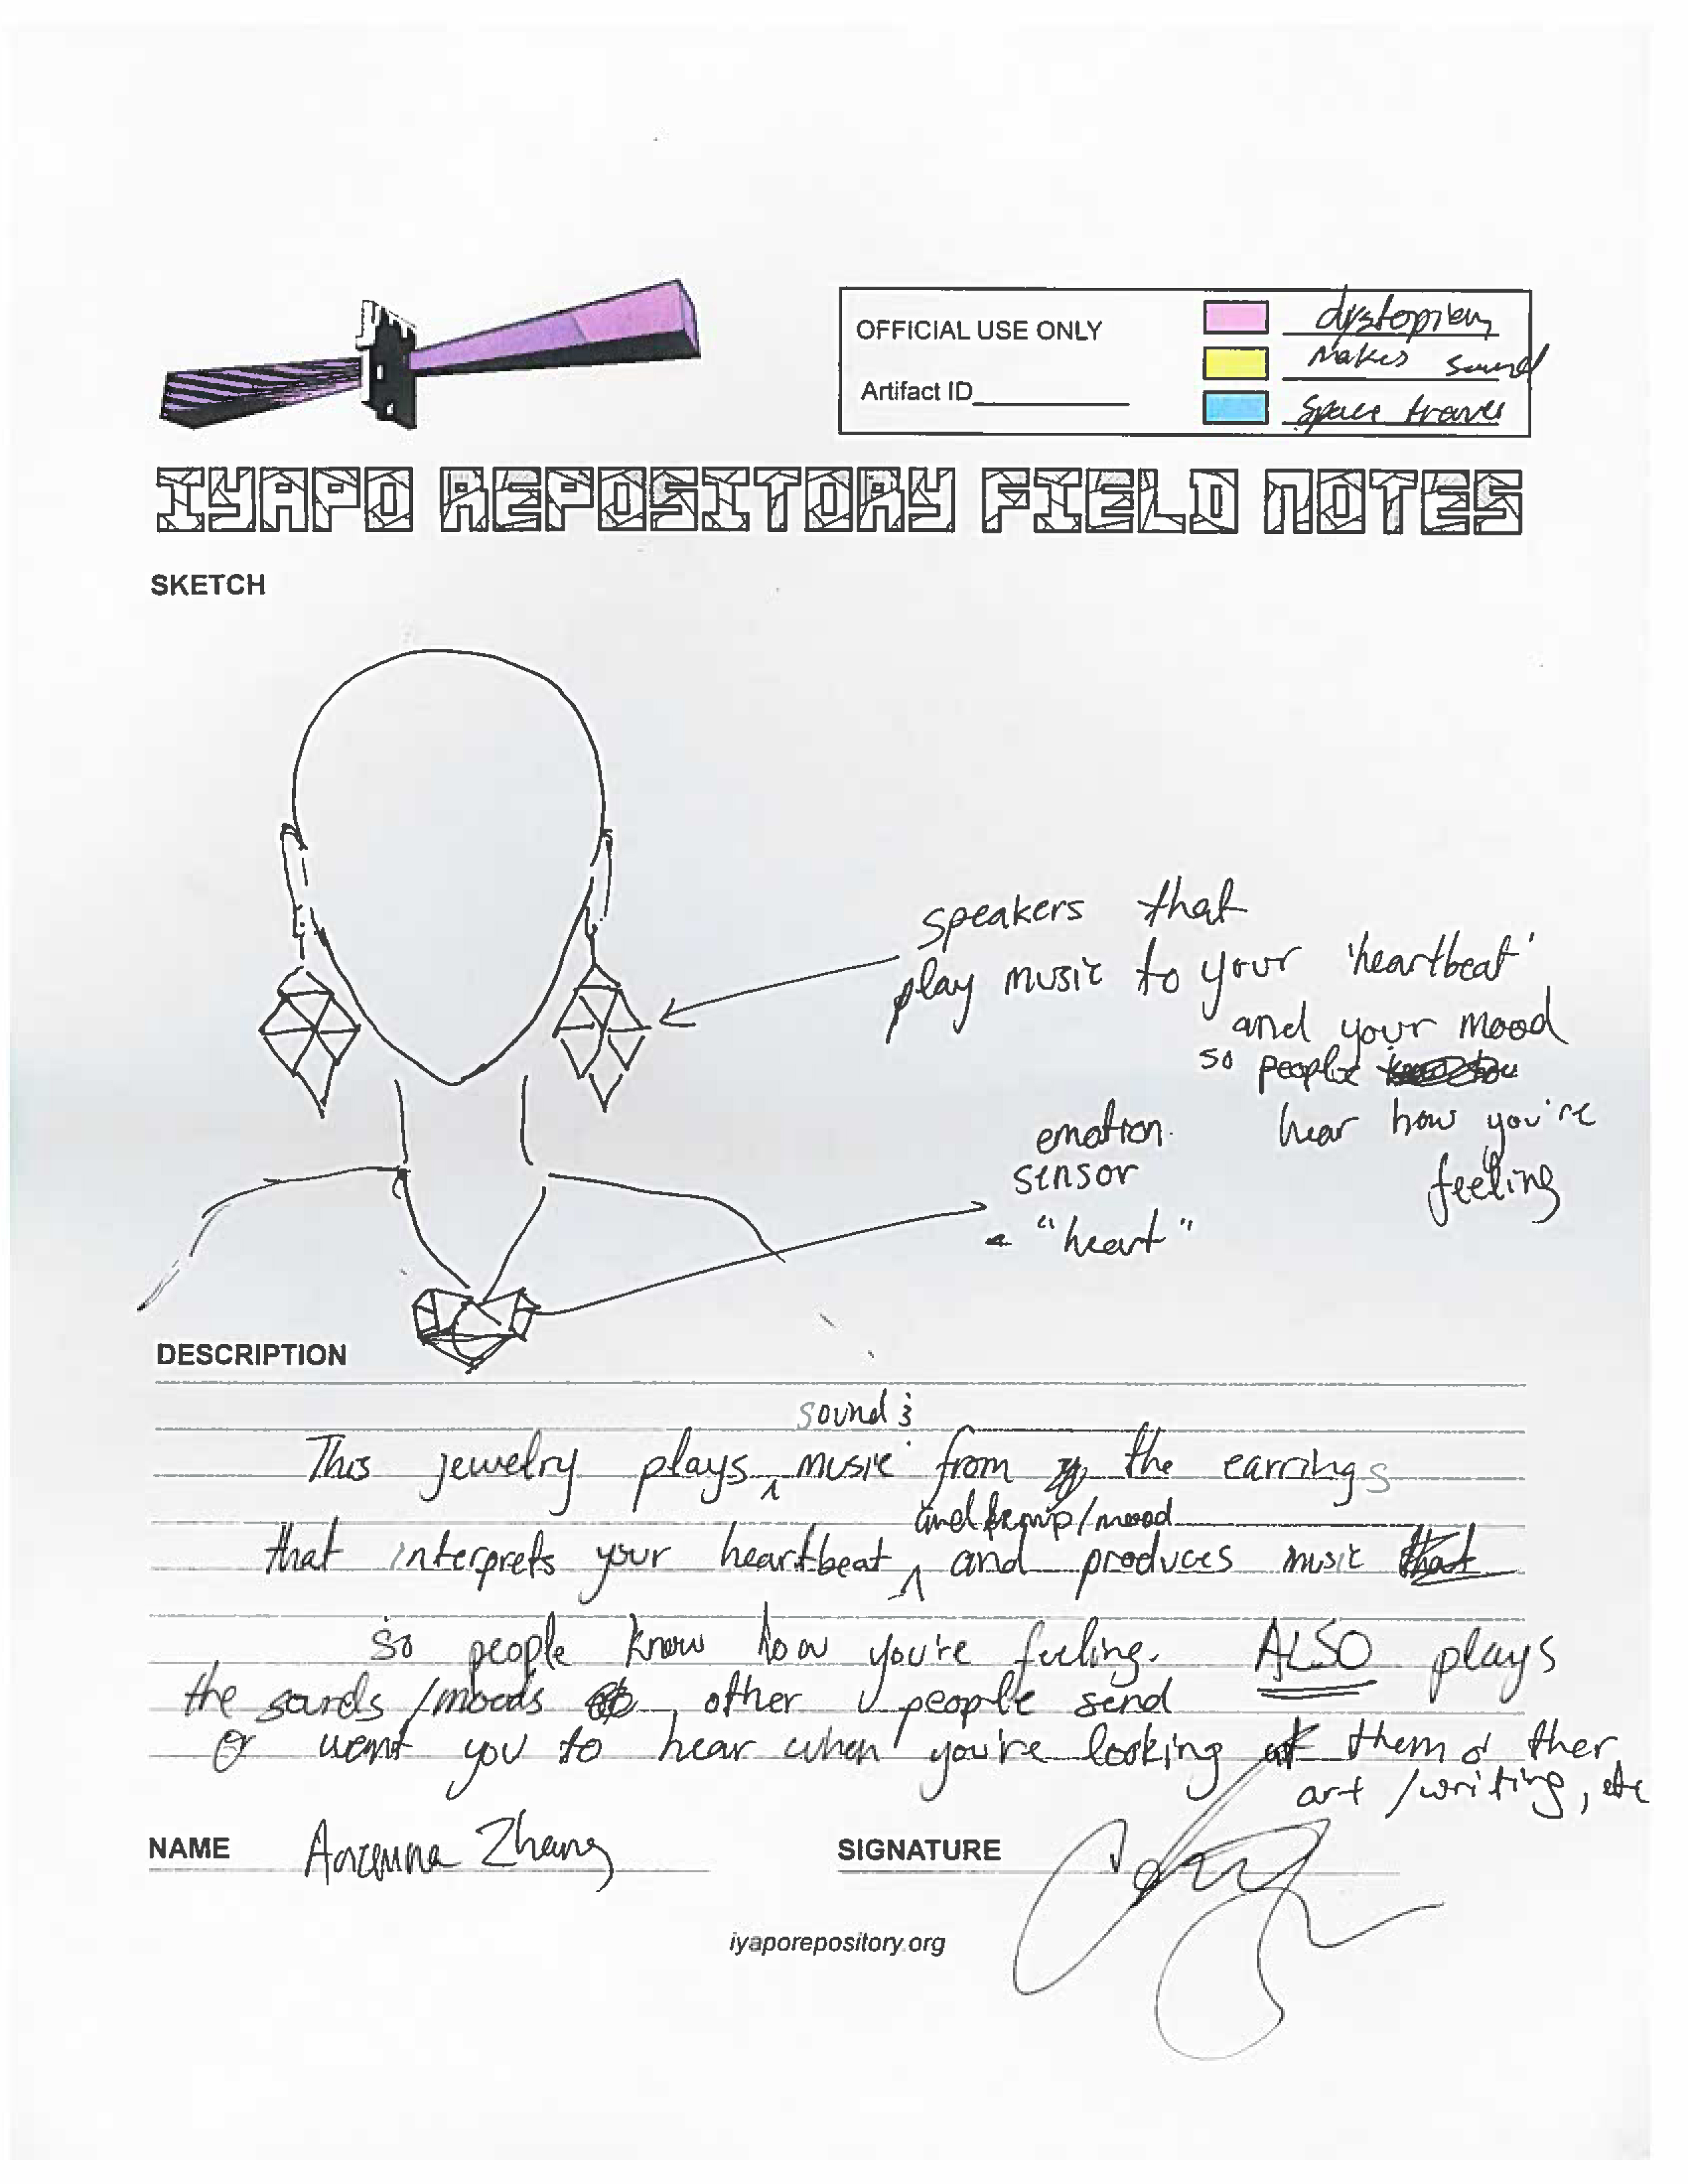 OFFICIAL USE ONLY
Artifact ID
dystopian
Makes sound
Space travel
IYAPO REPOSITORY FIELD NOTES
SKETCH
speakers that
play music to your 'heartbeat'
and your mood
so people
hear how you're
feeling
emotion
sensor
"heart"
DESCRIPTION
sound &
This jewelry plays music from the earrings
and temp/mood
that interprets your heartbeat and produces music that
so people know how you're feeling. ALSO plays
the sounds/moods other people send
or want you to hear when you're looking at them or their
art/writing, etc
NAME Zhang
SIGNATURE
iyaporepository.org